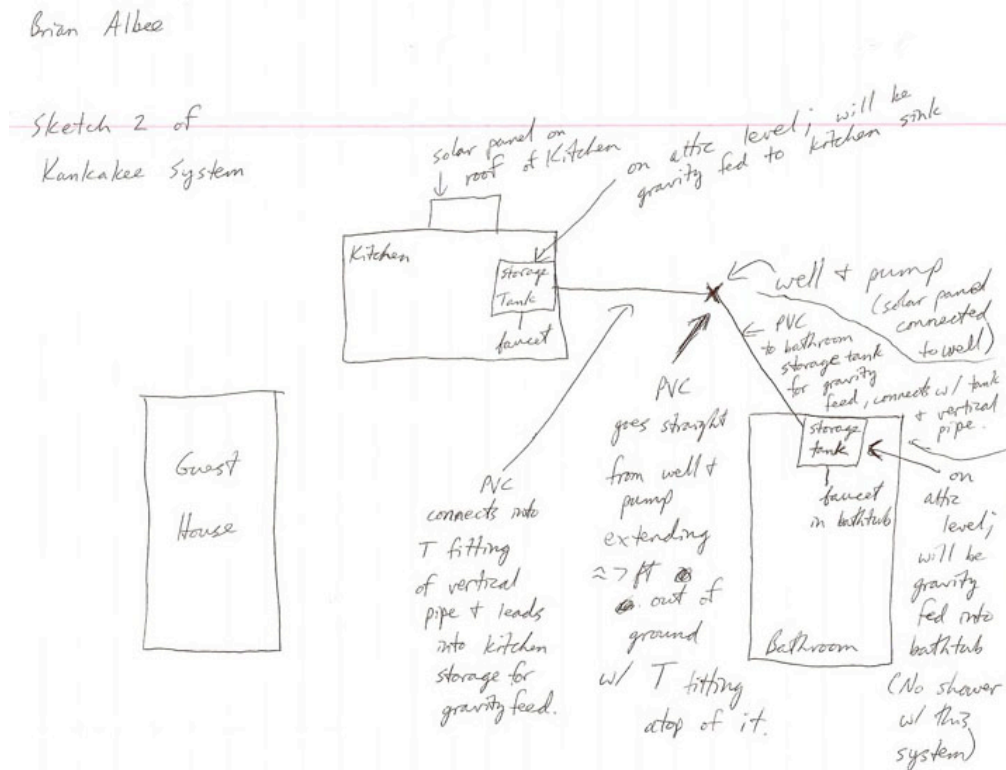 Brian Albee
Sketch 2 of
Kankakee System
solar panel on
roof of Kitchen
on attic level; will be
gravity fed to kitchen sink
Kitchen
storage
Tank
faucet
well + pump
(solar panel
connected
to well)
PVC
to bathroom
storage tank
for gravity
feed, connects w/ tank
+ vertical
pipe.
Guest
House
PVC
connects into
T fitting
of vertical
pipe + leads
into kitchen
storage for
gravity feed.
PVC
goes straight
from well +
pump
extending
≈ 7 ft
out of
ground
w/ T fitting
atop of it.
storage
tank
faucet
in bathtub
Bathroom
on
attic
level;
will be
gravity
fed into
bathtub
(No shower
w/ this
system)